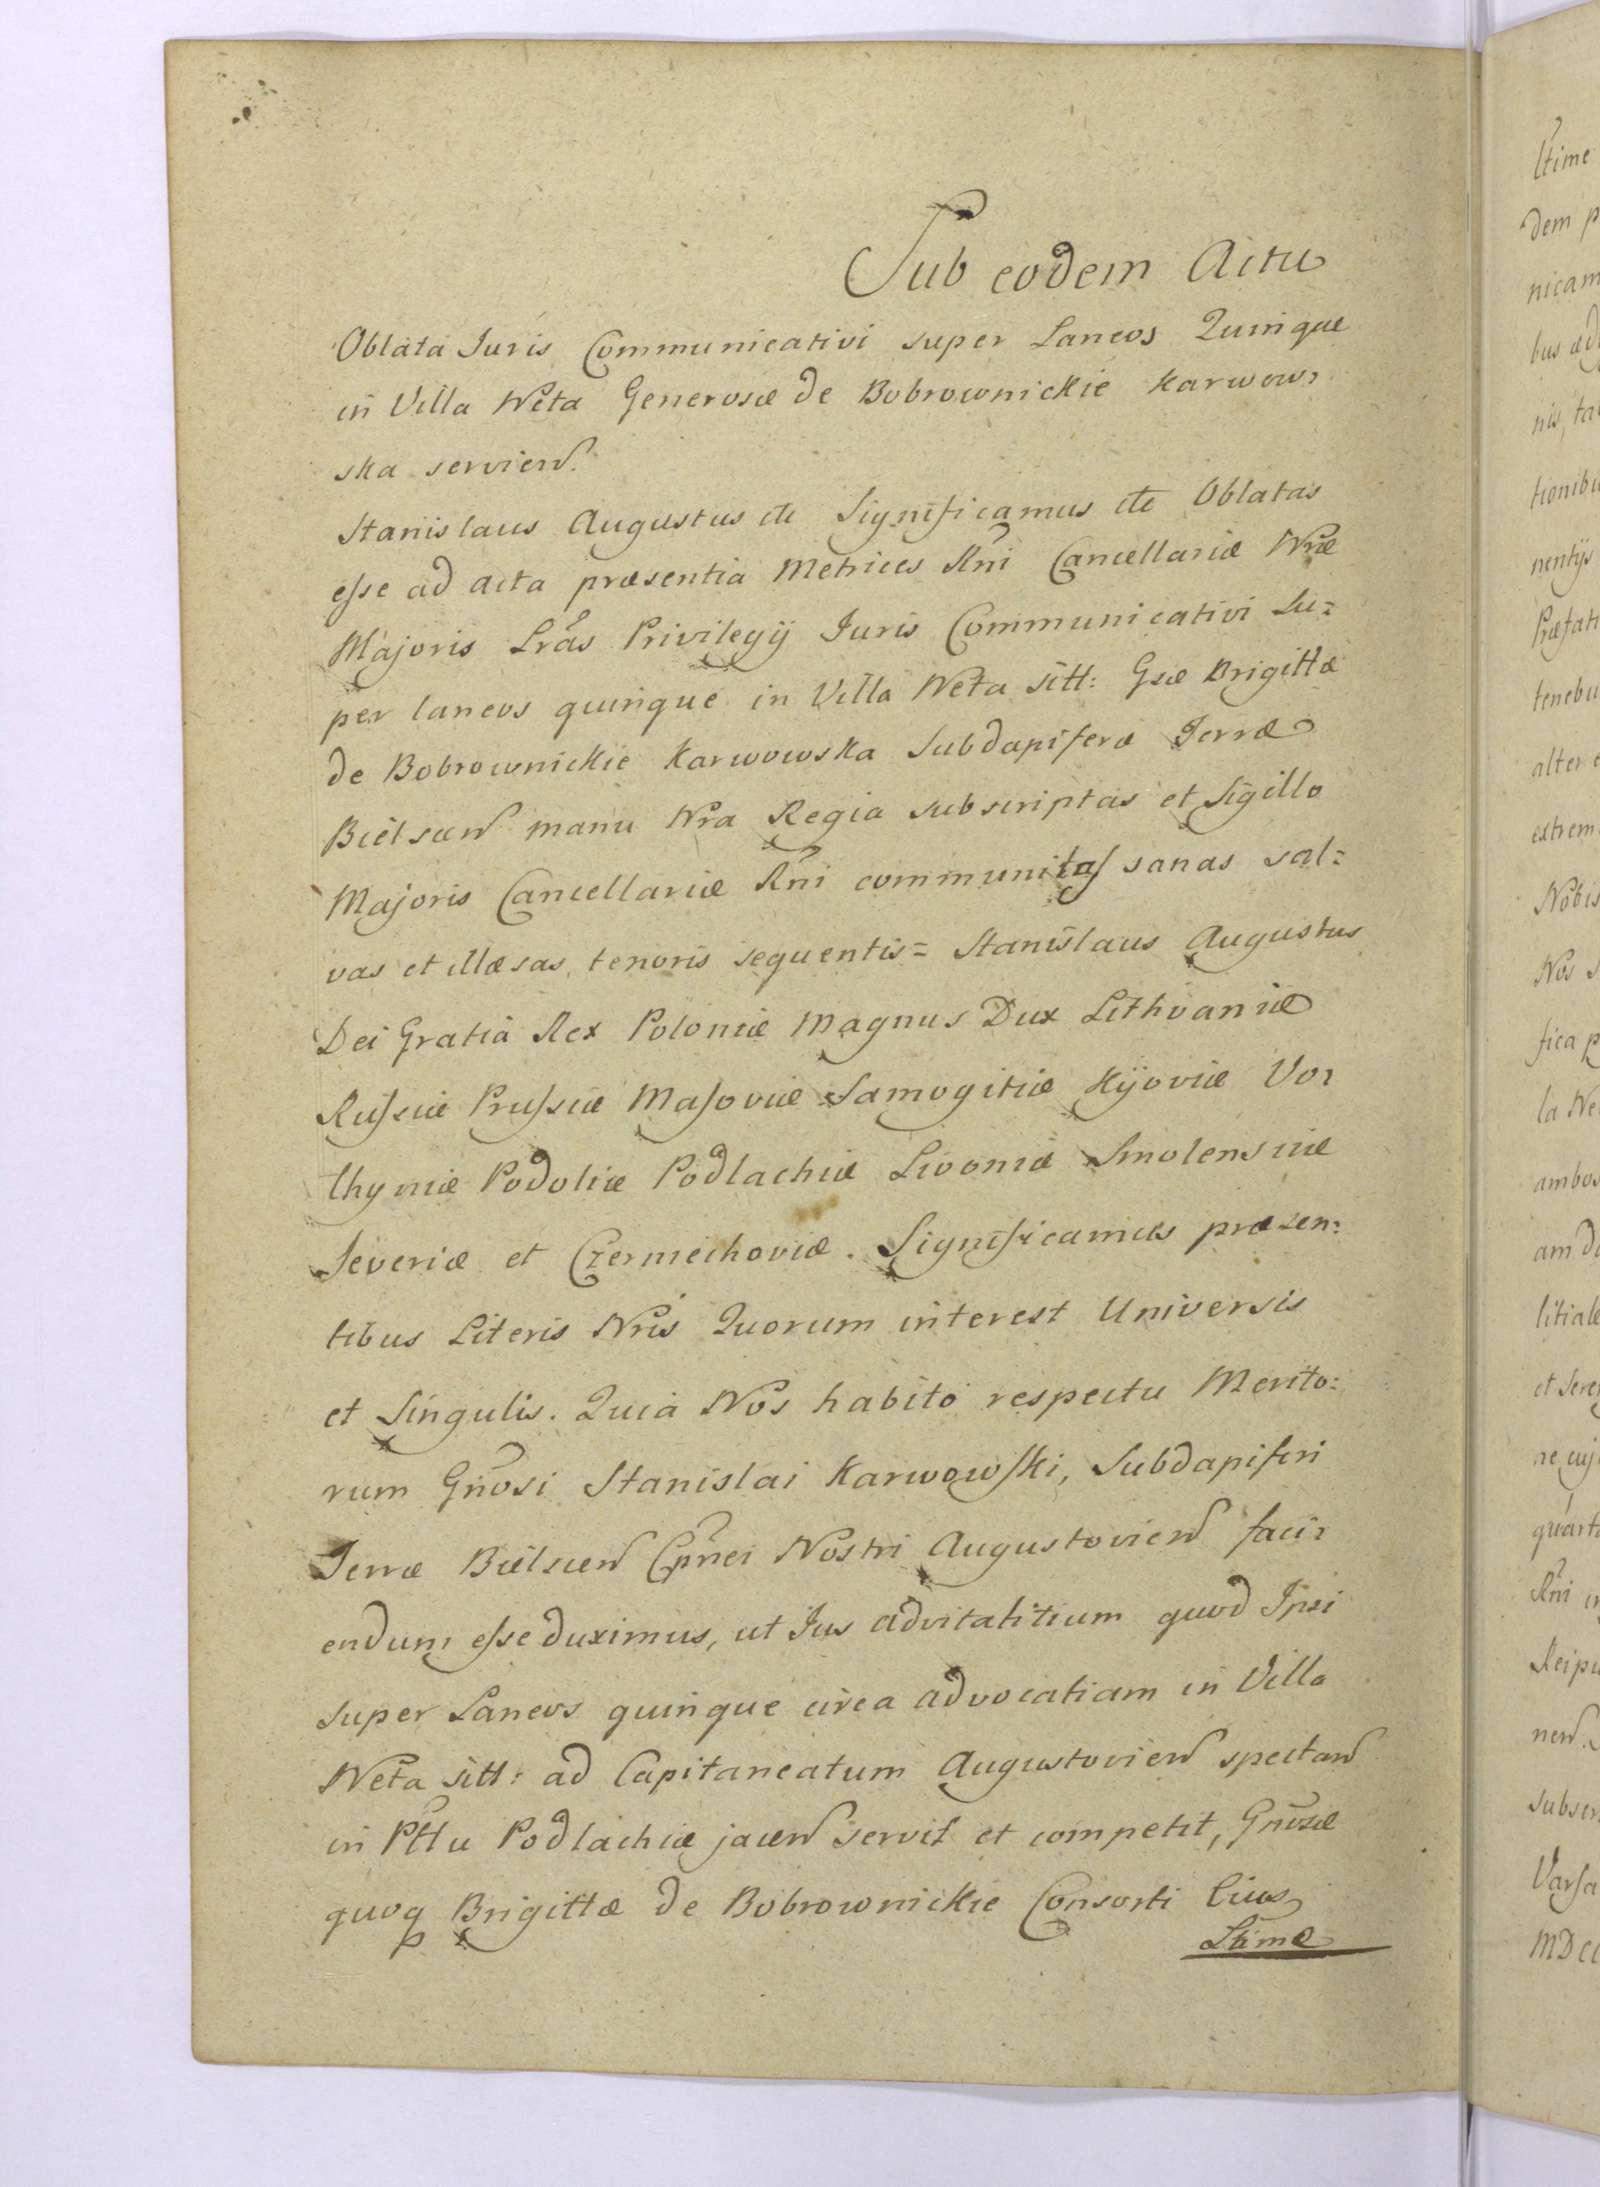 Sub eodem Actu
Oblata Juris Communicativi super Laneos Quinque
in Villa Neta Generosæ de Bobrownickie Karwow=
ska servien.
Stanislaus Augustus etc Significamus etc Oblatas
esse ad acta præsentia Metrices Rni Cancellariæ Nræ
Majoris Lras Privilegij Juris Communicativi Su=
per laneos quinque in Villa Neta sitt: Gsæ Brigittæ
de Bobrownickie Karwowska Subdapiferæ Terræ
Bielscen manu Nra Regia subscriptas et Sigillo
Majoris Cancellariæ Rni communitas sanas sal=
vas et illæsas, tenoris sequentis= Stanislaus Augustus
Dei Gratia Rex Poloniæ Magnus Dux Lithvaniæ
Russiæ Prussiæ Masoviæ Samogitiæ Kijoviæ Vo=
lhyniæ Podoliæ Podlachiæ Livoniæ Smolensciæ
Severiæ et Czerniechoviæ. Significamus præsen=
tibus Literis Nris Quorum interest Universis
et Singulis. Quia Nos habito respectu Merito=
rum Gnosi Stanislai Karwowski, Subdapiferi
Terræ Bielscen Cpnei Nostri Augustovien faci=
endum esse duximus, ut Jus advitalitium quod Ipsi
super Laneos quinque circa advocatiam in Villa
Neta sitt: ad Capitaneatum Augustovien spectan
in Pttu Podlachiæ jacen servit et competit, Gnosæ
quoq Brigittæ de Bobrownickie Consorti Eius
Ltimæ
ltime
dem p
nicam
bus ad
nis, ta
tionibu
nentijs
Præfati
tenebu
alter e
extrem
Nobis
Nos s
fica p
la Ne
ambos
am d
litiale
et Sere
re cuj
quart
Rni in
Reipu
nen. S
subscr
Varsa
MDCC